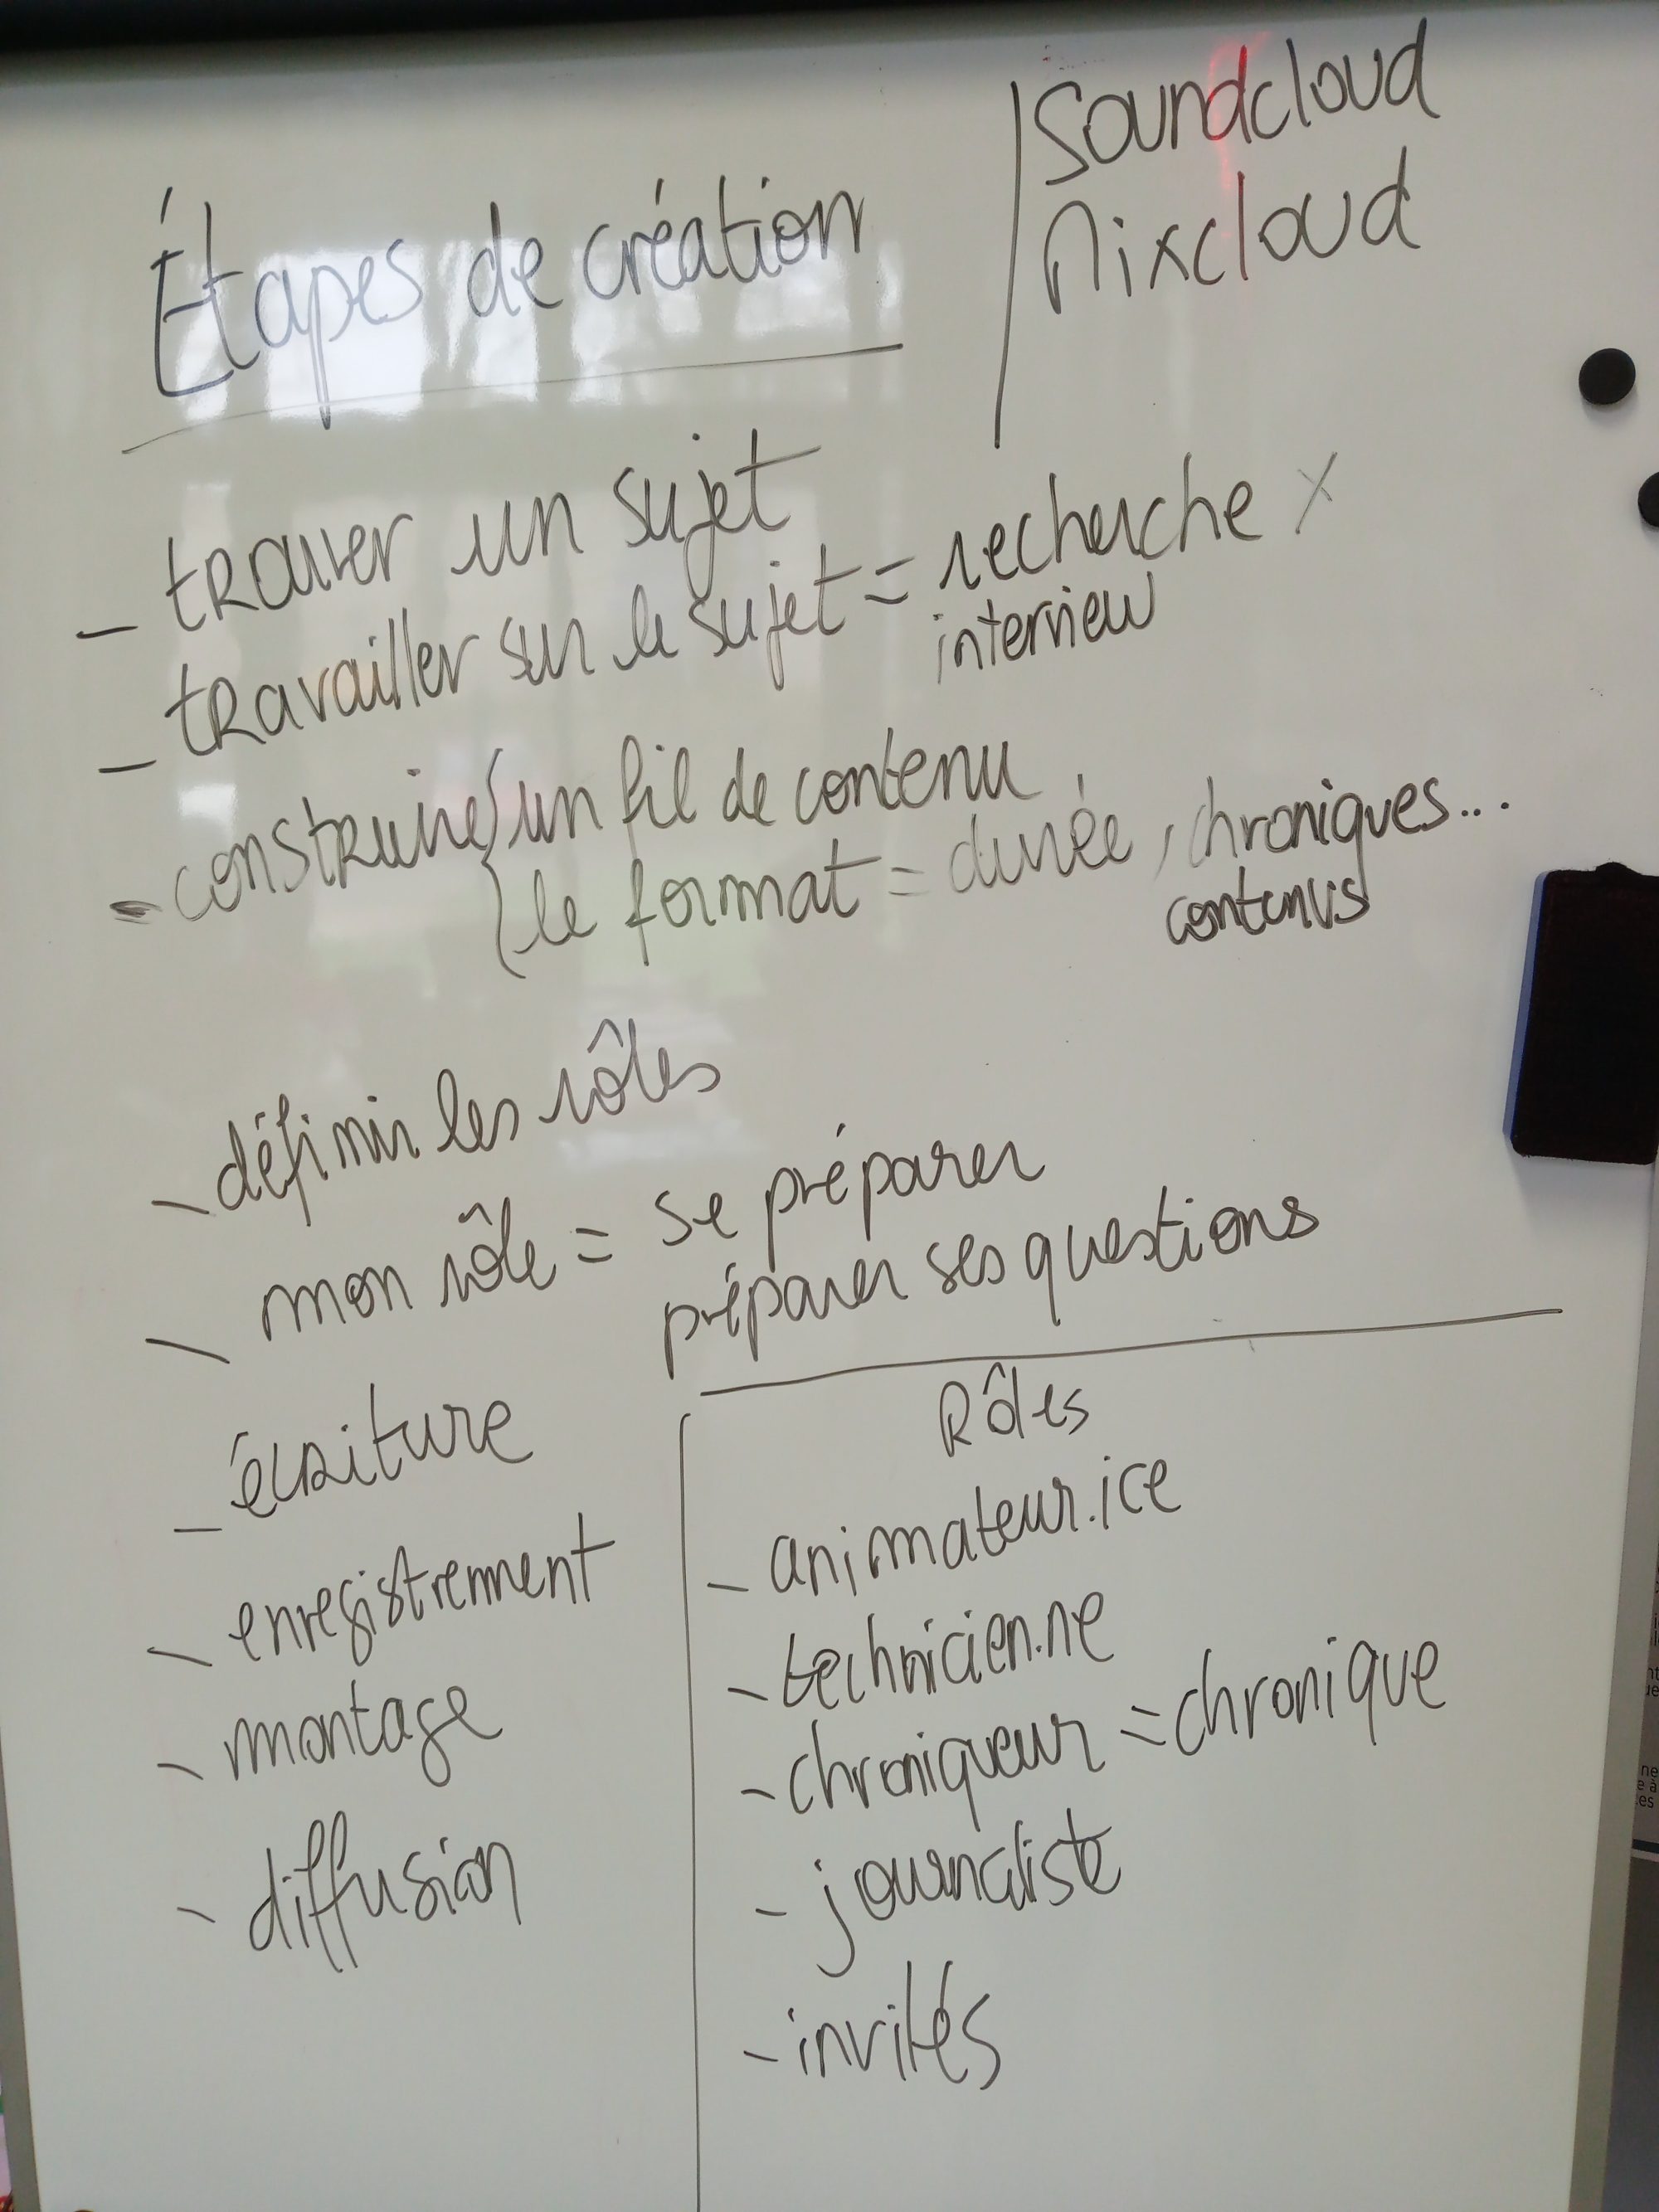 Soundcloud
Mixcloud
Étapes de création
- trouver un sujet
- travailler sur le sujet = recherche X
interview
- construire { un fil de contenu
le format = durée, chroniques...
contenus
- définir les rôles
- mon rôle = se préparer
préparer ses questions
- écriture
- enregistrement
- montage
- diffusion
Rôles
- animateur.ice
- technicien.ne
- chroniqueur = chronique
- journaliste
- invités